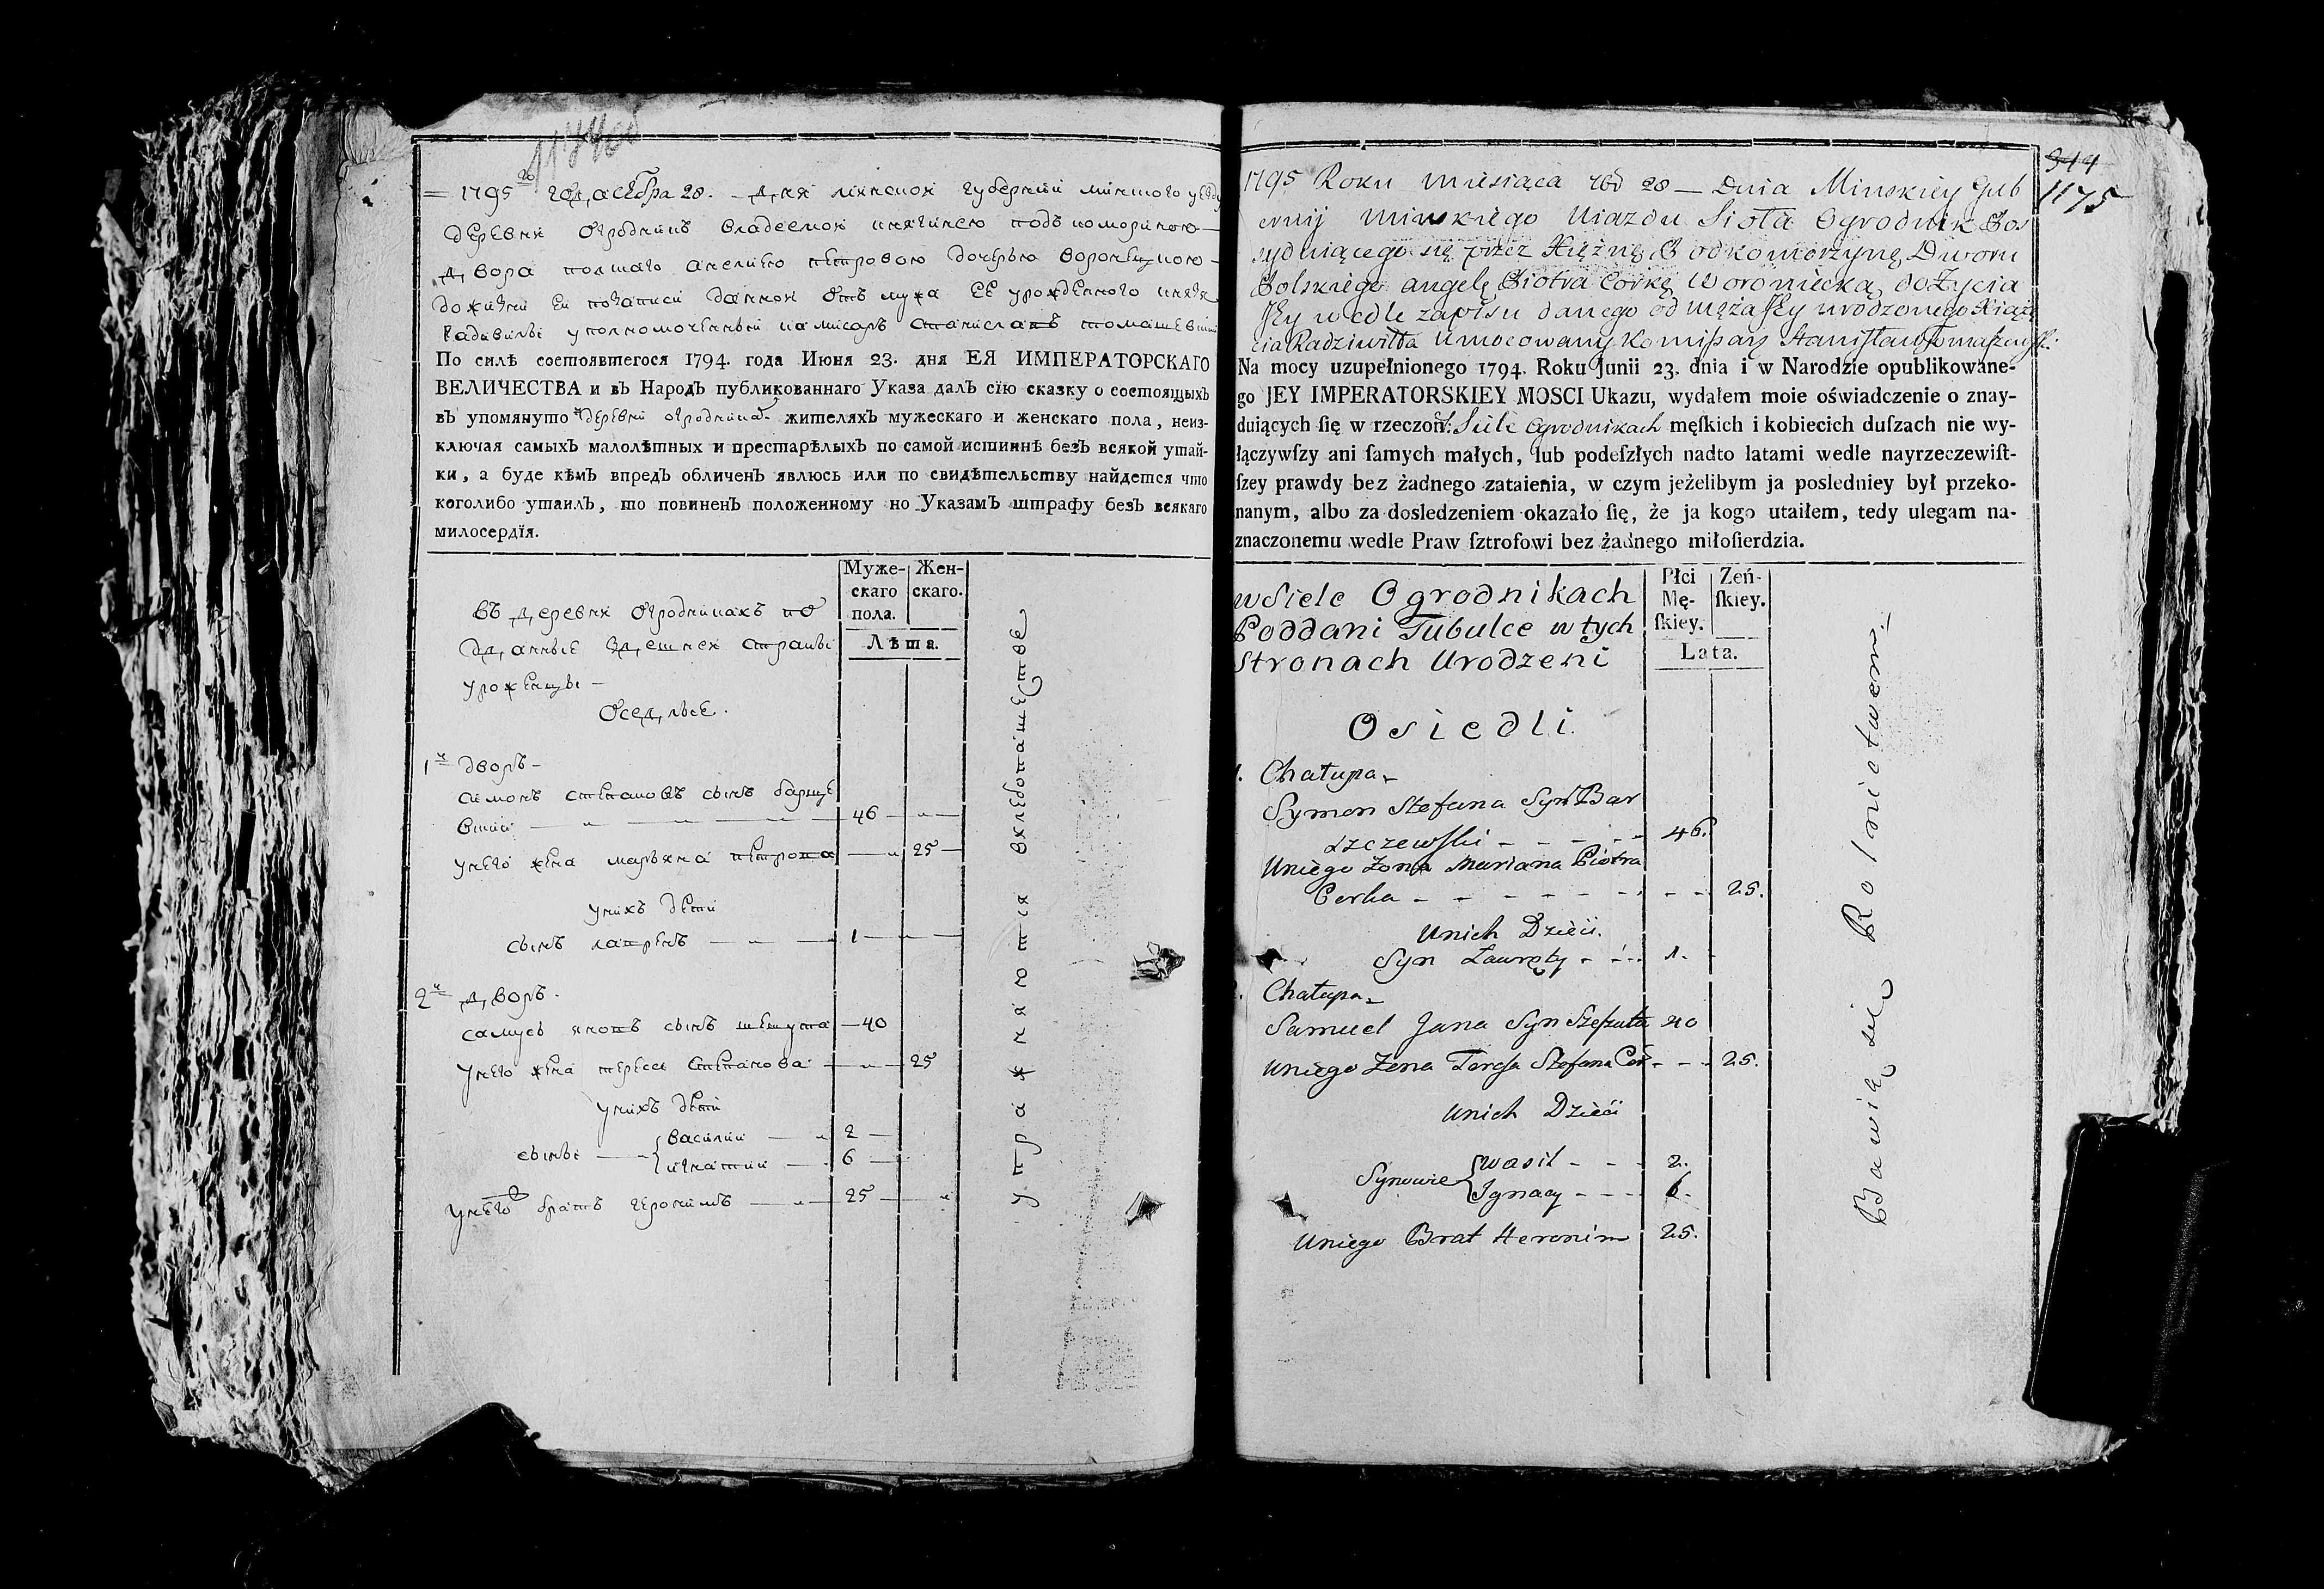 1174об
1795 года октября 28. дня минской губернии минского уезду
деревни огродникъ владеемой княгинею подъкомориною
двора полшаго анелиею петровою дочерью воронецкою
дожизни ей позаписи данной отъ мужа ее урожденного князя
радивилы уполномоченный камисаръ станиславъ томашевский
По силѣ состоявшегося 1794. года Июня 23. дня ЕЯ ИМПЕРАТОРСКАГО
ВЕЛИЧЕСТВА и въ Народъ публикованнаго Указа далъ сїю сказку о состоящыхъ
въ упомянуто й деревни огродникахъ жителяхъ мужескаго и женскаго пола, неиз-
ключая самыхъ малолѣтных и престарѣлыхъ по самой истиннѣ безъ всякой утай-
ки, а буде кѣмъ впредъ обличенъ явлюсь или по свидѣтельству найдется что
коголибо утаилъ, то повиненъ положенному но Указамъ штрафу безъ всякаго
милосердїя.
Муже-
скаго
пола.
Жен-
скаго.
Лѣта.
въ деревни огродникахъ по
дданные здешней страны
уроженцы —
Оседлые.
1й дворъ —
симонъ степановъ сынъ барще
вский 46
унего жена марьяна петрова 25
унихъ дети
сынъ лавренъ 1
2й дворъ.
самусь яновъ сынъ шешута 40
унего жена тереса степанова 25
унихъ дети
сыны василий 2
игнатий 6
унего братъ героним 25
упражняются вхлебопашестве
944
1175
1795 Roku Miesiąca 8bra 28 — Dnia Minskiey Gub
ernij Minskiego Uiazdu Sioła Ogrodnik Pos
sydującego się przez Xiężnę Podkomorzynę Dworu
Polskiego angelę Piotra Corkę Woroniecką do Życia
Jey wedle zapisu danego od męża Jey urodzonego Xiąże
cia Radziwiłła Umocowany Komissarz Stanisław Tomaszewski:
Na mocy uzupełnionego 1794. Roku Junii 23. dnia i w Narodzie opublikowane-
go JEY IMPERATORSKIEY MOSCI Ukazu, wydałem moie oświadczenie o znay-
duiących ſię w rzeczon: Siele Ogrodnikach męſkich i kobiecich duſzach nie wy-
łączywſzy ani ſamych małych, lub podeſzłych nadto latami wedle nayrzeczewiſt-
ſzey prawdy bez żadnego zataienia, w czym jeżelibym ja posledniey był przeko-
nanym, albo za dosledzeniem okazało ſię, że ja kogo utaiłem, tedy ulegam na-
znaczonemu wedle Praw ſztrofowi bez żadnego miłoſierdzia.
Płci
Mę-
ſkiey.
Zeń-
ſkiey.
Lata.
w Siele Ogrodnikach
Poddani Tubulce w tych
Stronach Urodzeni
Osiedli.
1. Chałupa
Symon Stefana Syn Bar
szczewski 46.
Uniego Zona Maryana Piotra
Corka 25.
Unich Dzieci.
Syn Ławręty 1.
2. Chałupa
Samuel Jana Syn Szeszuta 40
Uniego Zona Teressa Stefana Cór 25.
Unich Dzieci
Synowie Wasil 2.
Ignacy 6.
Uniego Brat Heronim 25.
Bawią się Rolnictwem.